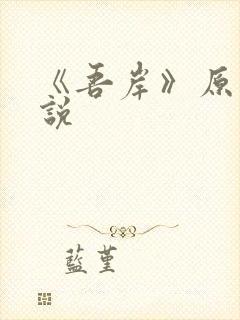 《吾岸》原
說
藍堇